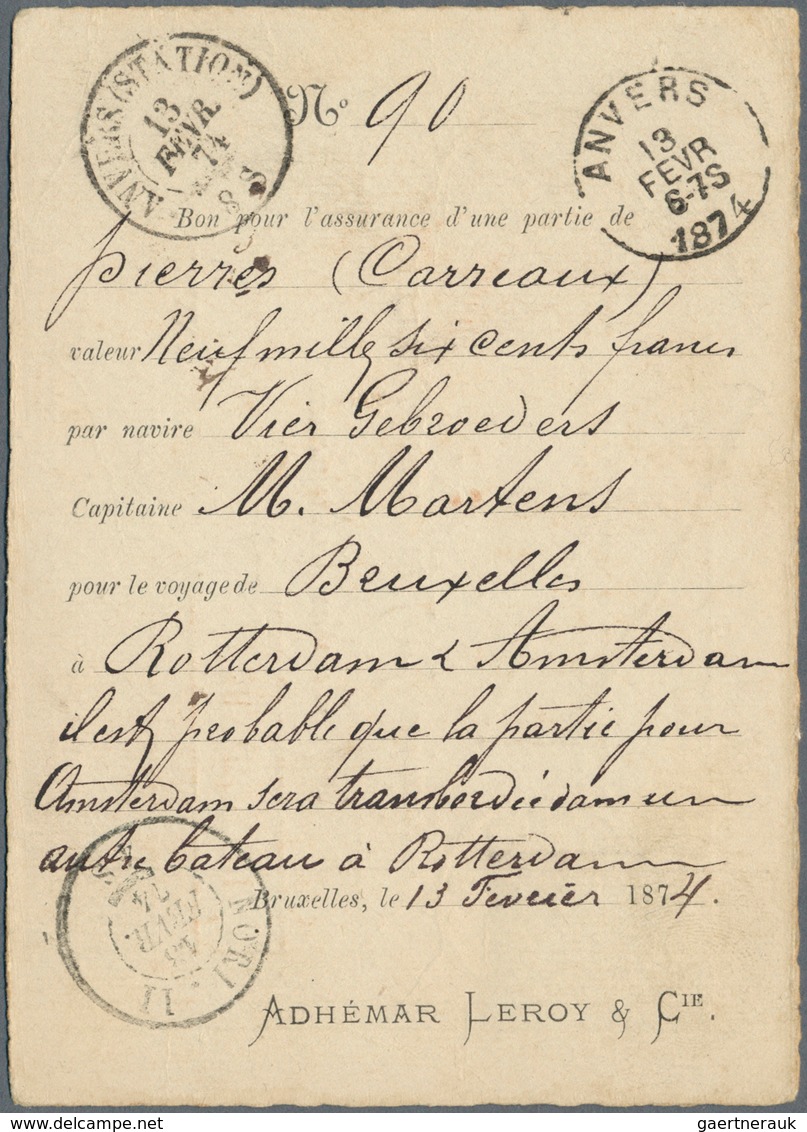 ANVERS (STATION)
13
FEVR
74
8 S
ANVERS
13
FEVR
6-7S
1874
No 90
Bon pour l'assurance d'une partie de
pierres (Carreaux)
valeur Neuf mille six cents francs
par navire Vier Gebroeders
Capitaine M. Martens
pour le voyage de Bruxelles
à Rotterdam & Amsterdam
il est probable que la partie pour
Amsterdam sera transbordée dans un
autre bateau à Rotterdam
Bruxelles, le 13 Fevrier 1874.
13
FEVR.
74
ADHÉMAR LEROY & CIE.
gaertnerauk